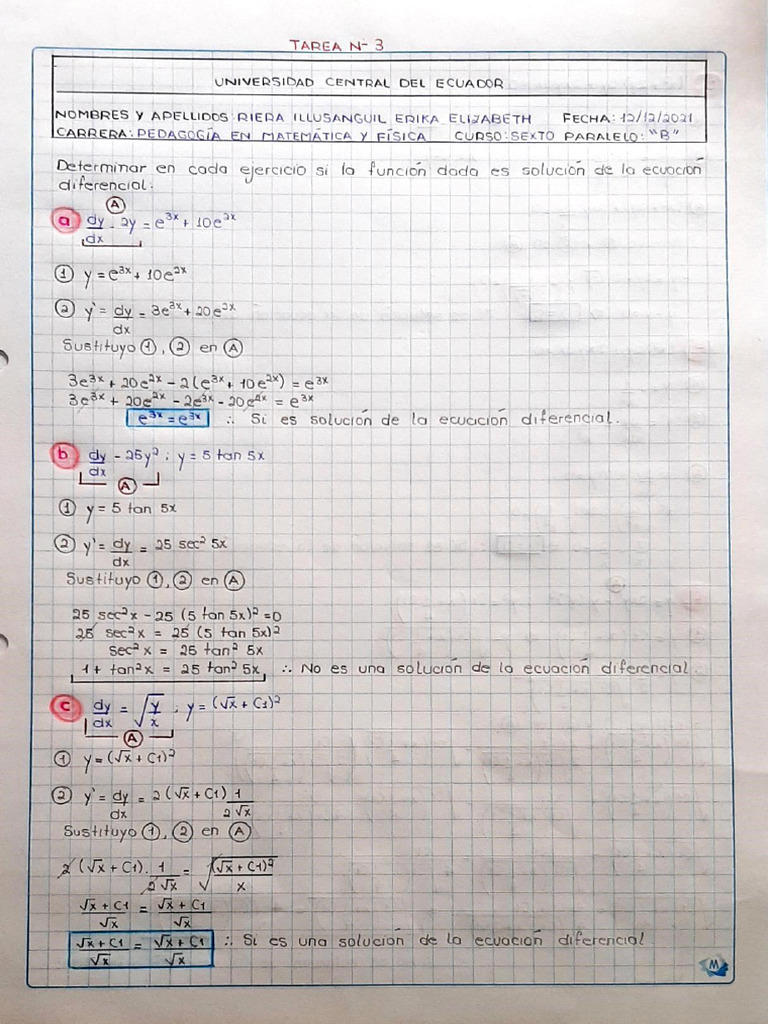 TAREA N- 3
UNIVERSIDAD CENTRAL DEL ECUADOR
NOMBRES Y APELLIDOS: RIERA ILLUSANGUIL ERIKA ELIZABETH FECHA: 12/12/2021
CARRERA: PEDAGOGÍA EN MATEMÁTICA Y FÍSICA CURSO: SEXTO PARALELO: "B"
Determinar en cada ejercicio si la función dada es solución de la ecuación
diferencial:
Ⓐ
ⓐ dy/dx - 2y = e³ˣ + 10e²ˣ
① y = e³ˣ + 10e²ˣ
② y' = dy/dx = 3e³ˣ + 20e²ˣ
Sustituyo ①, ② en Ⓐ
3e³ˣ + 20e²ˣ - 2(e³ˣ + 10e²ˣ) = e³ˣ
3e³ˣ + 20e²ˣ - 2e³ˣ - 20e²ˣ = e³ˣ
e³ˣ = e³ˣ ∴ Si es solución de la ecuación diferencial.
ⓑ dy/dx - 25y² ; y = 5 tan 5x
Ⓐ
① y = 5 tan 5x
② y' = dy/dx = 25 sec² 5x
Sustituyo ①, ② en Ⓐ
25 sec²x - 25 (5 tan 5x)² = 0
25 sec²x = 25 (5 tan 5x)²
sec²x = 25 tan² 5x
1 + tan²x = 25 tan² 5x ∴ No es una solución de la ecuación diferencial.
ⓒ dy/dx = √(y/x) ; y = (√x + C1)²
Ⓐ
① y = (√x + C1)²
② y' = dy/dx = 2(√x + C1) 1/(2√x)
Sustituyo ①, ② en Ⓐ
2(√x + C1) · 1/(2√x) = √((√x + C1)²/x)
(√x + C1)/√x = (√x + C1)/√x
(√x + C1)/√x = (√x + C1)/√x ∴ Si es una solución de la ecuación diferencial
M